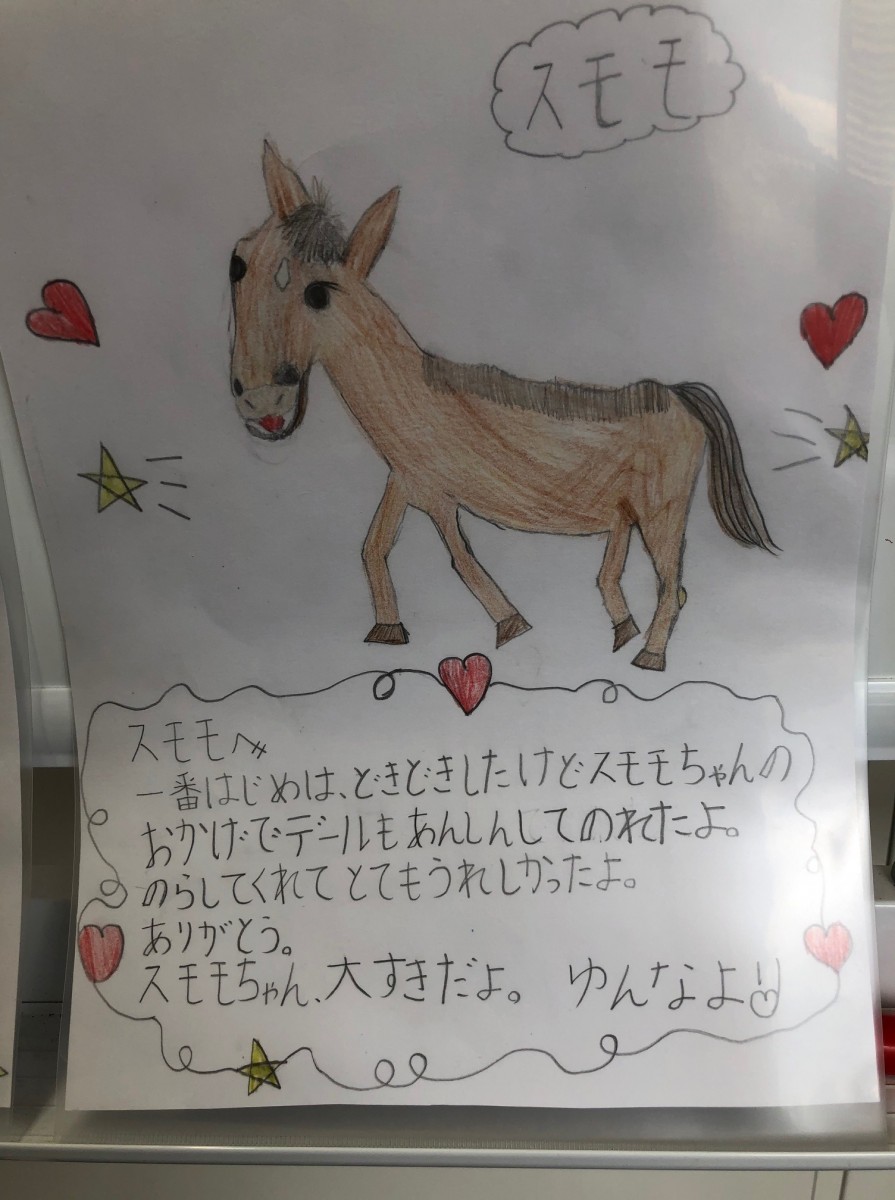 スモモ
スモモへ
一番はじめは、どきどきしたけどスモモちゃんの
おかげでデールもあんしんしてのれたよ。
のらしてくれてとてもうれしかったよ。
ありがとう。
スモモちゃん、大すきだよ。 ゆんなより